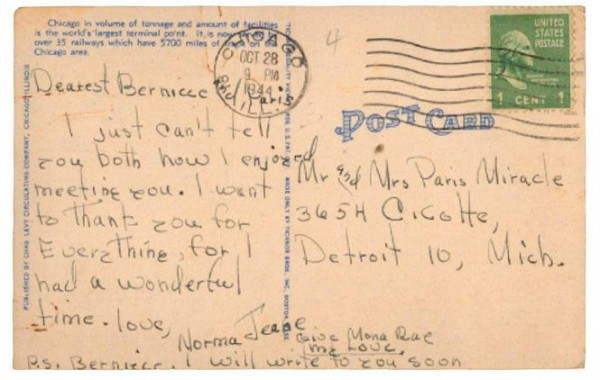 Chicago in volume of tonnage and amount of facilities
is the world's largest terminal point. It is now
over 35 railways which have 5700 miles of on the
Chicago area.
CHICAGO
OCT 28
9 PM
1944
ILL.
4
UNITED
STATES
POSTAGE
1 CENT 1
POST CARD
PUBLISHED BY CHAS. LEVY CIRCULATING COMPANY, CHICAGO, ILLINOIS
MADE ONLY BY TICHNOR BROS., INC., BOSTON, MASS.
Dearest Berniece
and Paris
I just can't tell
you both how I enjoyed
meeting you. I want
to thank you for
Everything, for I
had a wonderful
time. love,
Norma Jeane
P.S. Berniece, I will write to you soon
Give Mona Rae
my Love.
Mr and Mrs Paris Miracle
3654 Cicotte,
Detroit 10, Mich.